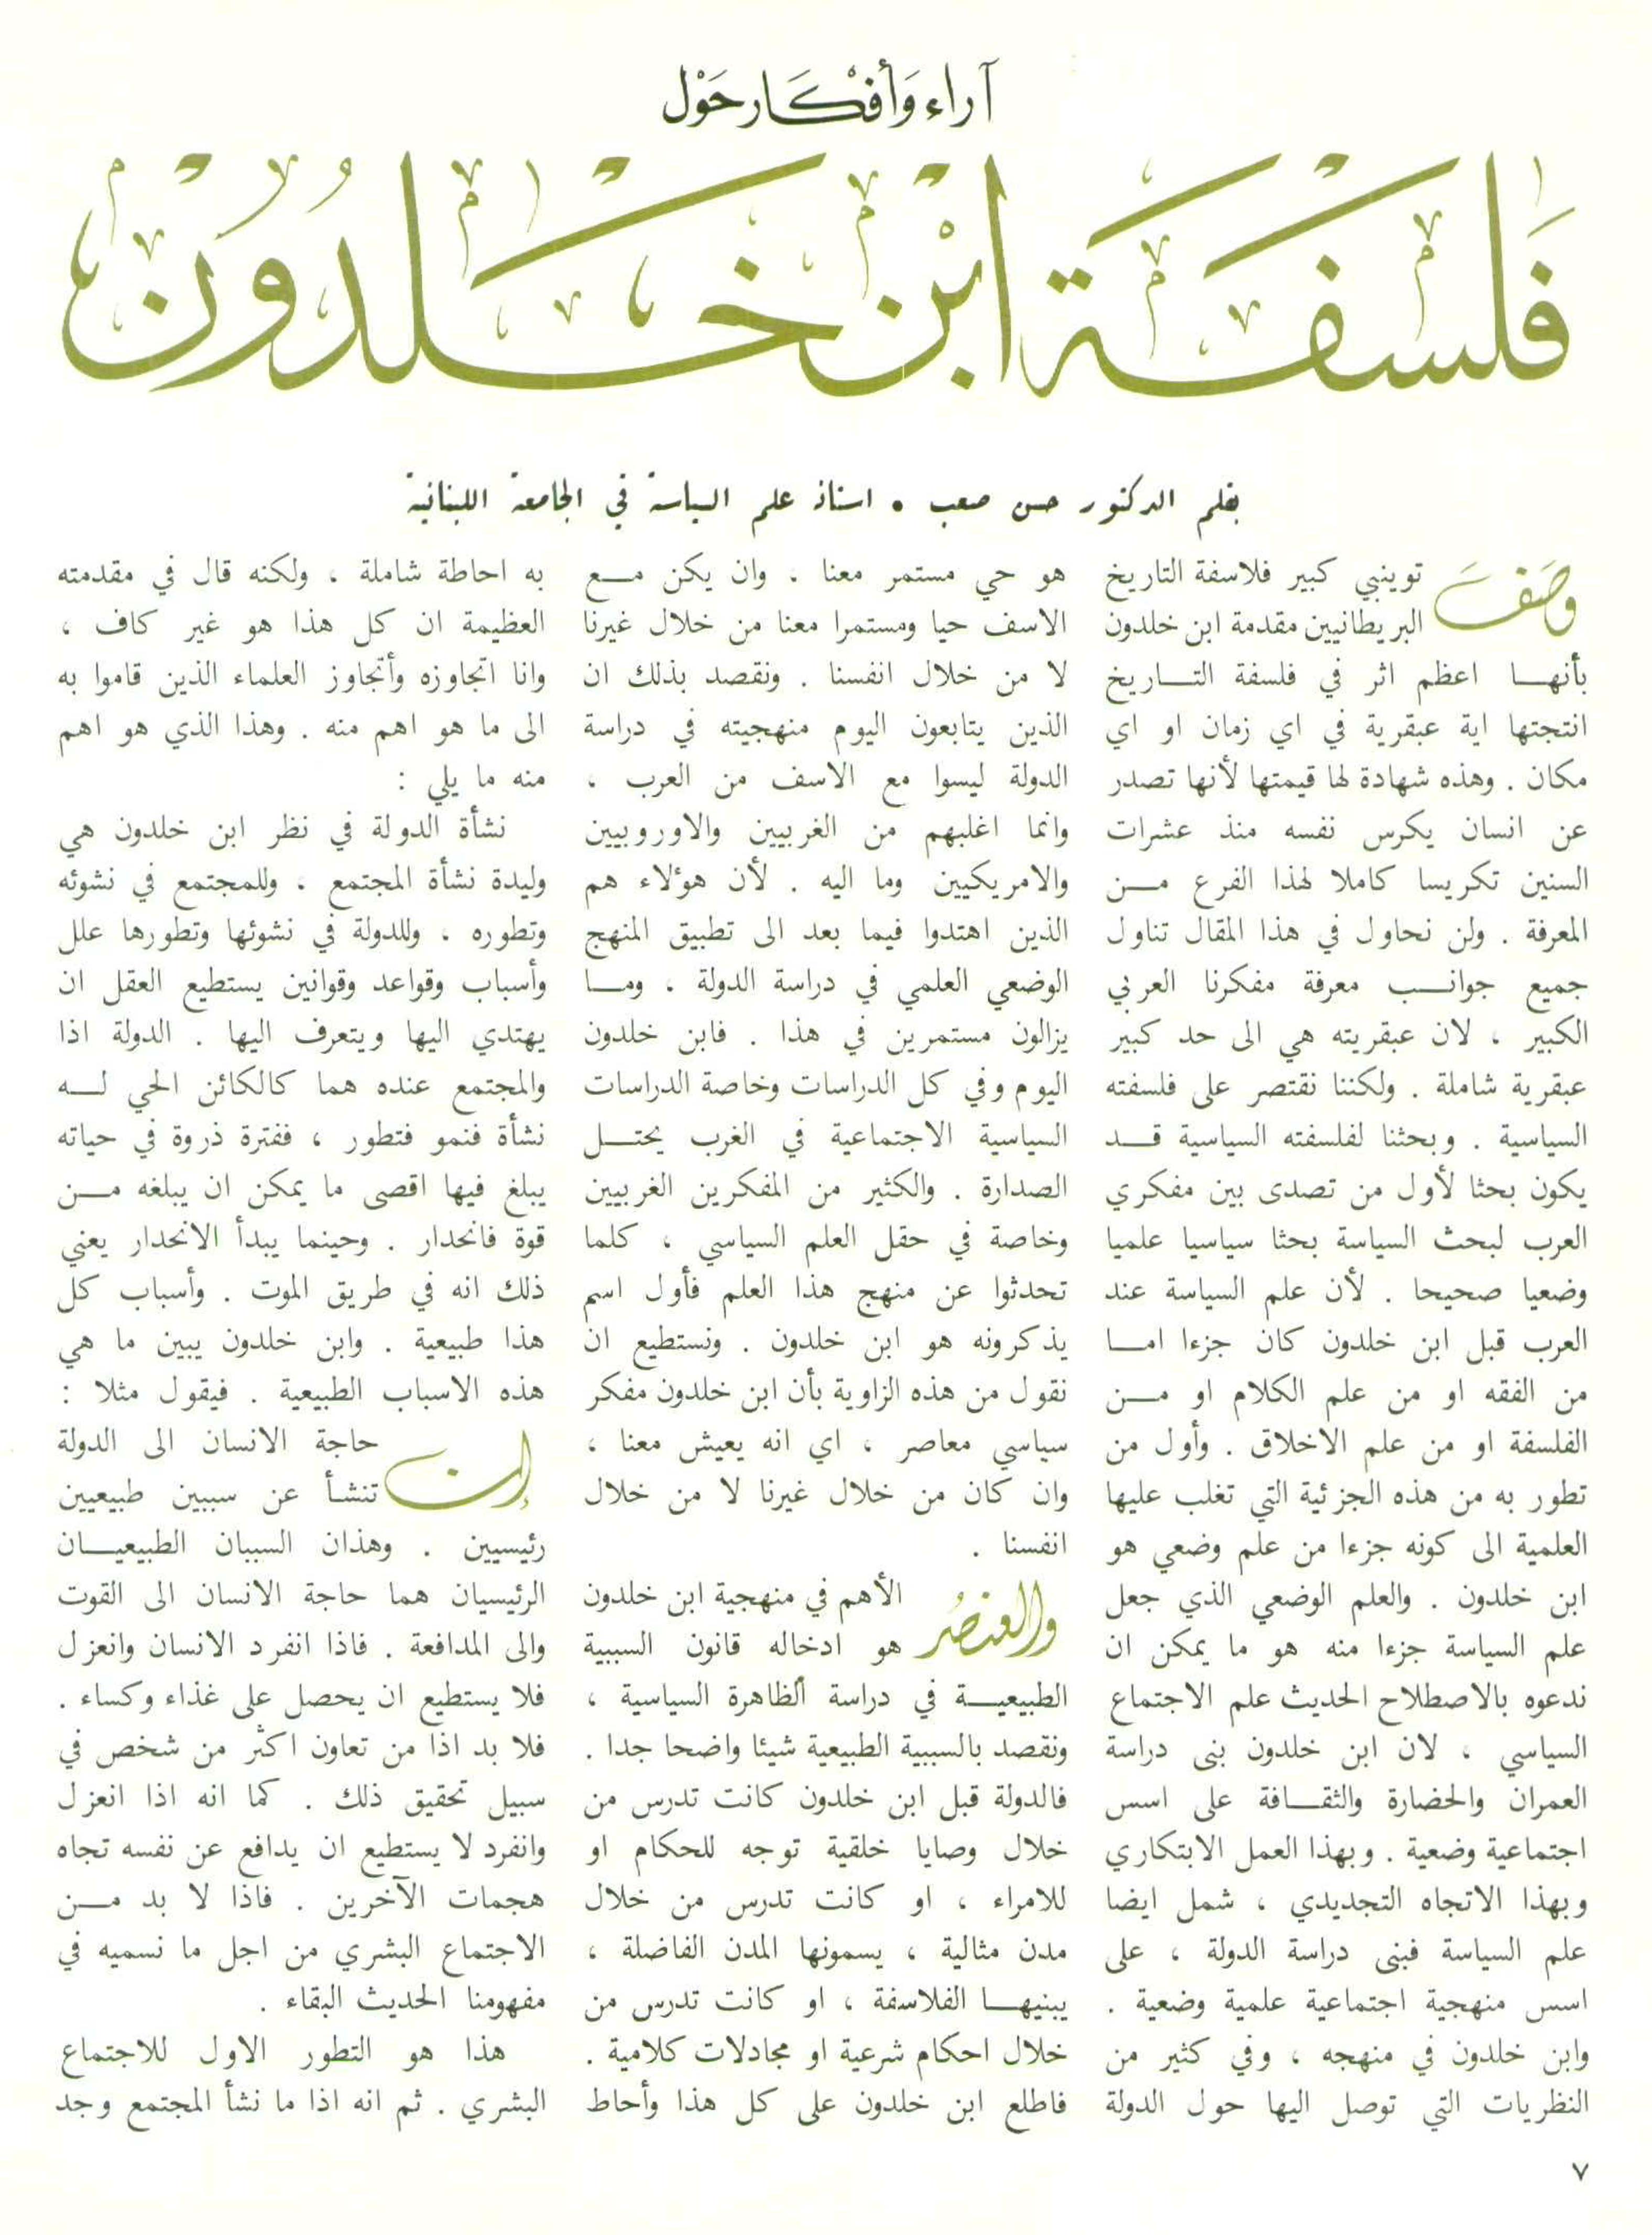 آراء وَأفْكَار حَوْل
فَلسَفَة ابْن خَلدُوْن
بقلم الدكتور حسن صعب • استاذ علم السياسة في الجامعة اللبنانية
وصَفَ توينبي كبير فلاسفة التاريخ
البريطانيين مقدمة ابن خلدون
بأنهـا اعظم اثر في فلسفة التـاريخ
انتجتها اية عبقرية في اي زمان او اي
مكان . وهذه شهادة لها قيمتها لأنها تصدر
عن انسان يكرس نفسه منذ عشرات
السنين تكريسا كاملا لهذا الفرع مـن
المعرفة . ولن نحاول في هذا المقال تناول
جميع جوانـب معرفة مفكرنا العربي
الكبير ، لان عبقريته هي الى حد كبير
عبقرية شاملة . ولكننا نقتصر على فلسفته
السياسية . وبحثنا لفلسفته السياسية قـد
يكون بحثا لأول من تصدى بين مفكري
العرب لبحث السياسة بحثا سياسيا علميا
وضعيا صحيحا . لأن علم السياسة عند
العرب قبل ابن خلدون كان جزءا امـا
من الفقه او من علم الكلام او مـن
الفلسفة او من علم الاخلاق . وأول من
تطور به من هذه الجزئية التي تغلب عليها
العلمية الى كونه جزءا من علم وضعي هو
ابن خلدون . والعلم الوضعي الذي جعل
علم السياسة جزءا منه هو ما يمكن ان
ندعوه بالاصطلاح الحديث علم الاجتماع
السياسي ، لان ابن خلدون بنى دراسة
العمران والحضارة والثقـافة على اسس
اجتماعية وضعية . وبهذا العمل الابتكاري
وبهذا الاتجاه التجديدي ، شمل ايضا
علم السياسة فبنى دراسة الدولة ، على
اسس منهجية اجتماعية علمية وضعية .
وابن خلدون في منهجه ، وفي كثير من
النظريات التي توصل اليها حول الدولة
هو حي مستمر معنا . وان يكن مـع
الاسف حيا ومستمرا معنا من خلال غيرنا
لا من خلال انفسنا . ونقصد بذلك ان
الذين يتابعون اليوم منهجيته في دراسة
الدولة ليسوا مع الاسف من العرب ،
وانما اغلبهم من الغربيين والاوروبيين
والامريكيين وما اليه . لأن هؤلاء هم
الذين اهتدوا فيما بعد الى تطبيق المنهج
الوضعي العلمي في دراسة الدولة ، ومـا
يزالون مستمرين في هذا . فابن خلدون
اليوم وفي كل الدراسات وخاصة الدراسات
السياسية الاجتماعية في الغرب يحتـل
الصدارة . والكثير من المفكرين الغربيين
وخاصة في حقل العلم السياسي ، كلما
تحدثوا عن منهج هذا العلم فأول اسم
يذكرونه هو ابن خلدون . ونستطيع ان
نقول من هذه الزاوية بأن ابن خلدون مفكر
سياسي معاصر ، اي انه يعيش معنا ،
وان كان من خلال غيرنا لا من خلال
انفسنا .
والعنصُر الأهم في منهجية ابن خلدون
هو ادخاله قانون السببية
الطبيعيـة في دراسة الظاهرة السياسية ،
ونقصد بالسببية الطبيعية شيئا واضحا جدا .
فالدولة قبل ابن خلدون كانت تدرس من
خلال وصايا خلقية توجه للحكام او
للامراء ، او كانت تدرس من خلال
مدن مثالية ، يسمونها المدن الفاضلة ،
يبنيهـا الفلاسفة ، او كانت تدرس من
خلال احكام شرعية او مجادلات كلامية .
فاطلع ابن خلدون على كل هذا وأحاط
به احاطة شاملة ، ولكنه قال في مقدمته
العظيمة ان كل هذا هو غير كاف ،
وانا اتجاوزه وأتجاوز العلماء الذين قاموا به
الى ما هو اهم منه . وهذا الذي هو اهم
منه ما يلي :
نشأة الدولة في نظر ابن خلدون هي
وليدة نشأة المجتمع . وللمجتمع في نشوئه
وتطوره ، وللدولة في نشوئها وتطورها علل
وأسباب وقواعد وقوانين يستطيع العقل ان
يهتدي اليها ويتعرف اليها . الدولة اذا
والمجتمع عنده هما كالكائن الحي لـه
نشأة فنمو فتطور ، ففترة ذروة في حياته
يبلغ فيها اقصى ما يمكن ان يبلغه مـن
قوة فانحدار . وحينما يبدأ الانحدار يعني
ذلك انه في طريق الموت . وأسباب كل
هذا طبيعية . وابن خلدون يبين ما هي
هذه الاسباب الطبيعية . فيقول مثلا :
إن حاجة الانسان الى الدولة
تنشـأ عن سببين طبيعيين
رئيسيين . وهذان السببان الطبيعيـان
الرئيسيان هما حاجة الانسان الى القوت
والى المدافعة . فاذا انفرد الانسان وانعزل
فلا يستطيع ان يحصل على غذاء وكساء .
فلا بد اذا من تعاون اكثر من شخص في
سبيل تحقيق ذلك . كما انه اذا انعزل
وانفرد لا يستطيع ان يدافع عن نفسه تجاه
هجمات الآخرين . فاذا لا بد مـن
الاجتماع البشري من اجل ما نسميه في
مفهومنا الحديث البقاء .
هذا هو التطور الاول للاجتماع
البشري . ثم انه اذا ما نشأ المجتمع وجد
٧